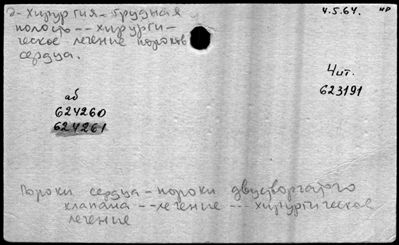 2-Хирургия-грудная
полость--хирурги-
ческое лечение пороков
сердца.
4.5.64.
нр
Чит.
623191
аб
624260
624261
Пороки сердца-пороки двустворчатого
клапана--лечение---хирургическое
лечение